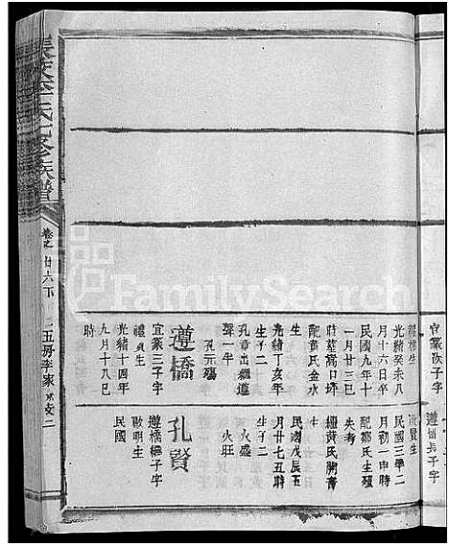 李氏七修族譜
廿六下
五房李家
宜篆次子字
生
光緒癸未八
月十六日卒
民國九年十
一月廿三巳
時葬窩口坪
配黃氏金水
生
光緒丁亥年
生子二
孔章出繼道
聲一年
孔元殤
遵橋
宜篆三子字
禮貞生
光緒十四年
九月十八巳
時
長子字
賢生
民國三年二
月初一申時
配鄒氏生殁
失考
繼黃氏關膏
生
民國戊辰五
月廿七五時
生子二
火盛
火旺
孔賢
遵橋子字
歐明生
民國
FamilySearch